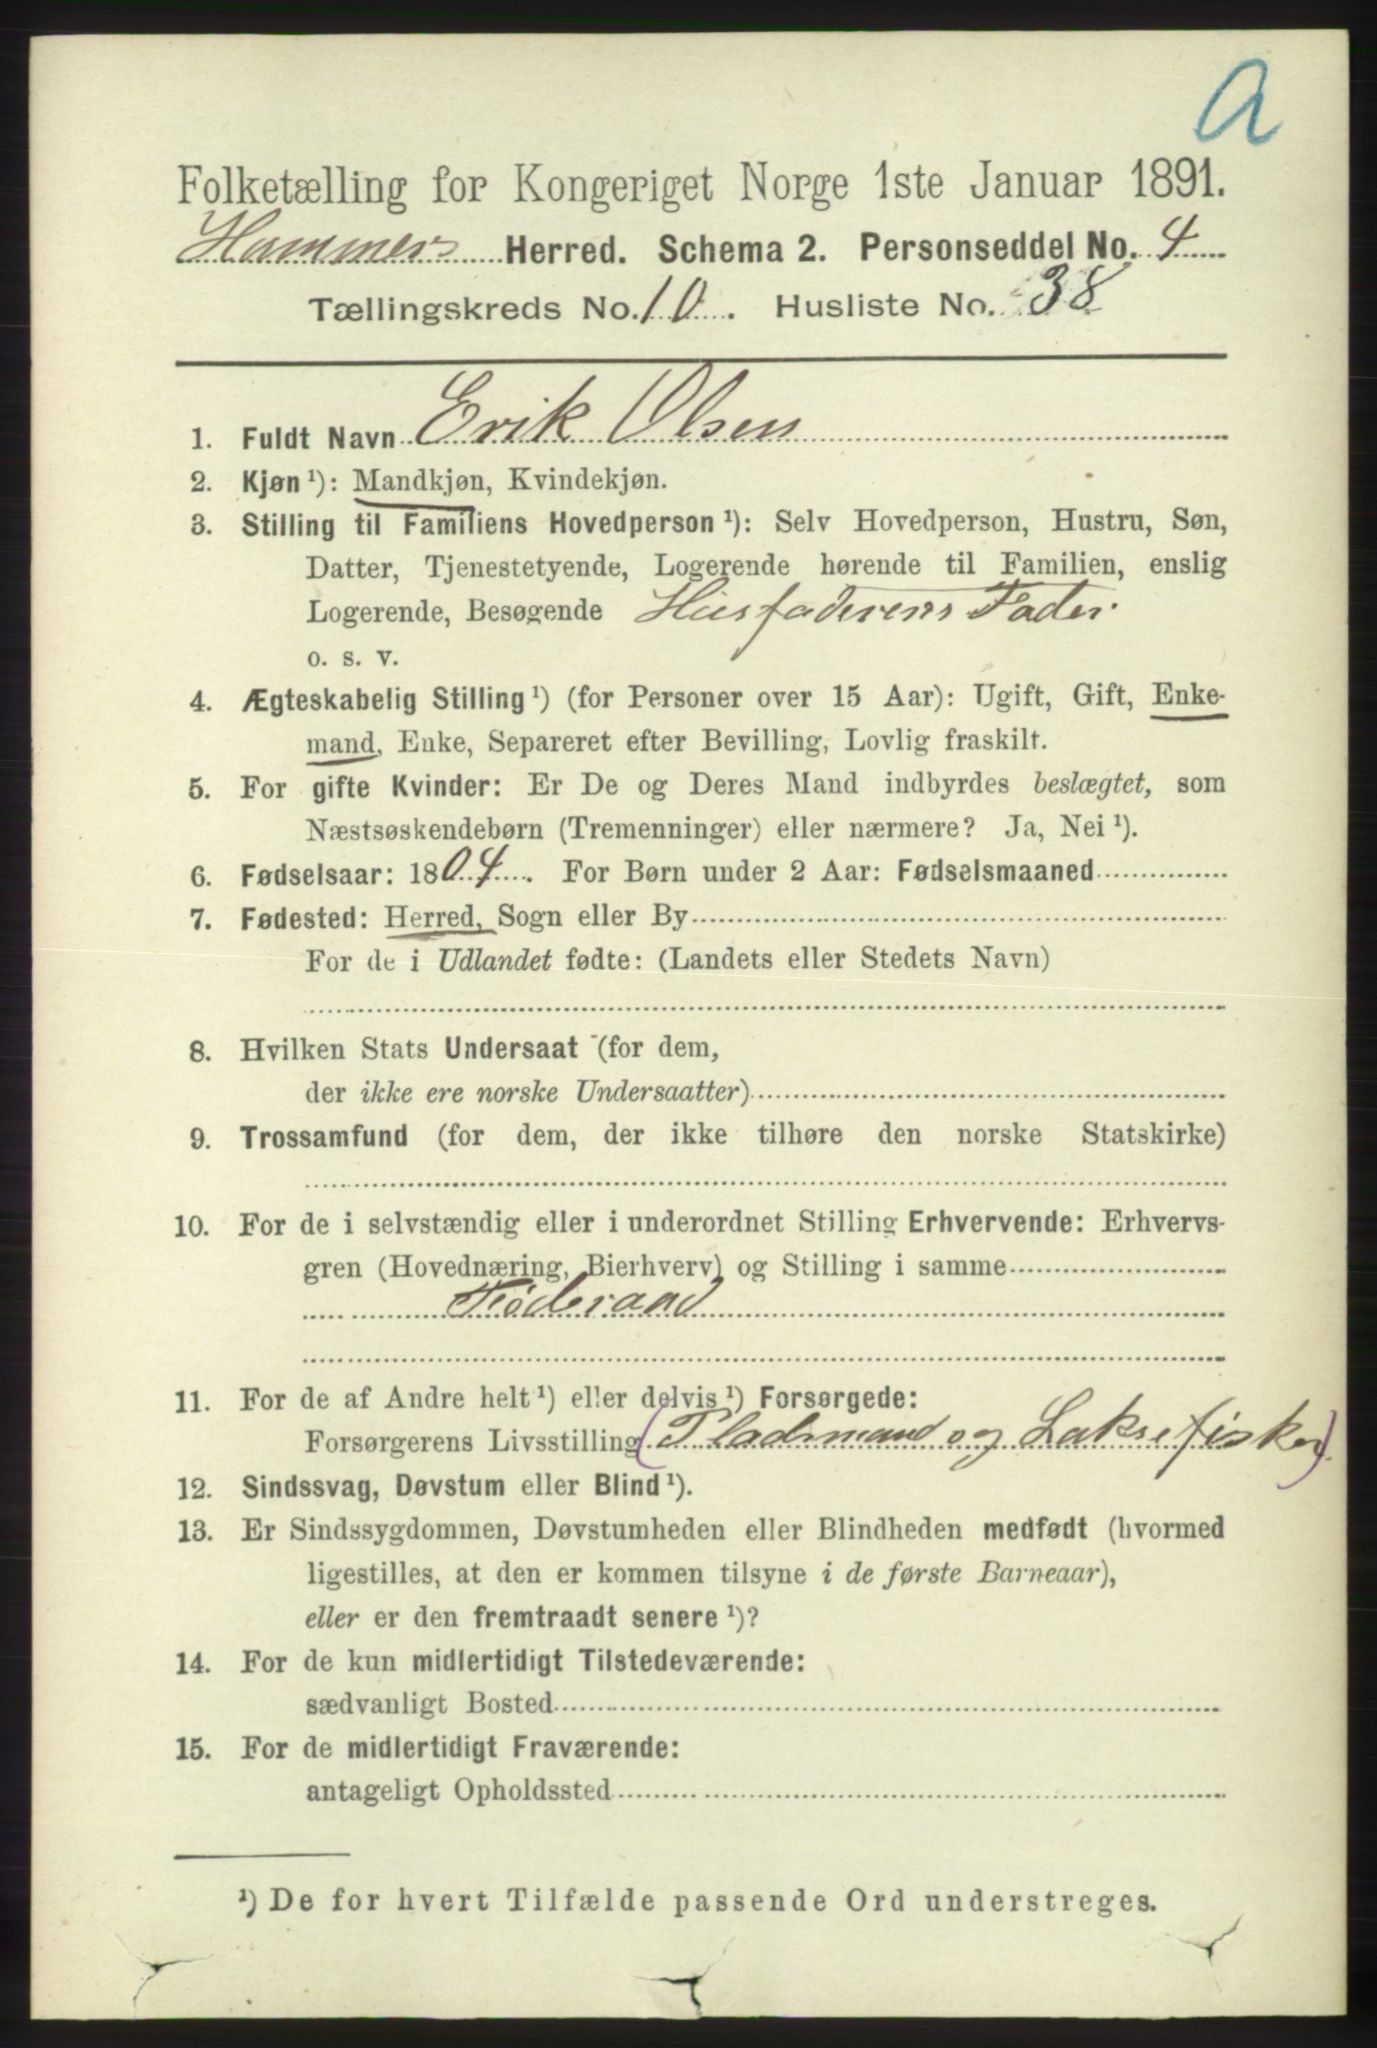 a
Folketælling for Kongeriget Norge 1ste Januar 1891.
Hammers Herred. Schema 2. Personseddel No. 4
Tællingskreds No. 10. Husliste No. 38
1. Fuldt Navn Erik Olsen
2. Kjøn¹): Mandkjøn, Kvindekjøn.
3. Stilling til Familiens Hovedperson¹): Selv Hovedperson, Hustru, Søn,
Datter, Tjenestetyende, Logerende hørende til Familien, enslig
Logerende, Besøgende Husfaderens Fader
o. s. v.
4. Ægteskabelig Stilling¹) (for Personer over 15 Aar): Ugift, Gift, Enke-
mand, Enke, Separeret efter Bevilling, Lovlig fraskilt.
5. For gifte Kvinder: Er De og Deres Mand indbyrdes beslægtet, som
Næstsøskendebørn (Tremenninger) eller nærmere? Ja, Nei¹).
6. Fødselsaar: 1804. For Børn under 2 Aar: Fødselsmaaned
7. Fødested: Herred, Sogn eller By
For de i Udlandet fødte: (Landets eller Stedets Navn)
8. Hvilken Stats Undersaat (for dem,
der ikke ere norske Undersaatter)
9. Trossamfund (for dem, der ikke tilhøre den norske Statskirke)
10. For de i selvstændig eller i underordnet Stilling Erhvervende: Erhvervs-
gren (Hovednæring, Bierhverv) og Stilling i samme
Føderaad
11. For de af Andre helt¹) eller delvis¹) Forsørgede:
Forsørgerens Livsstilling (Pladsmand og Laksefisker)
12. Sindssvag, Døvstum eller Blind¹).
13. Er Sindssygdommen, Døvstumheden eller Blindheden medfødt (hvormed
ligestilles, at den er kommen tilsyne i de første Barneaar),
eller er den fremtraadt senere¹)?
14. For de kun midlertidigt Tilstedeværende:
sædvanligt Bosted
15. For de midlertidigt Fraværende:
antageligt Opholdssted
¹) De for hvert Tilfælde passende Ord understreges.